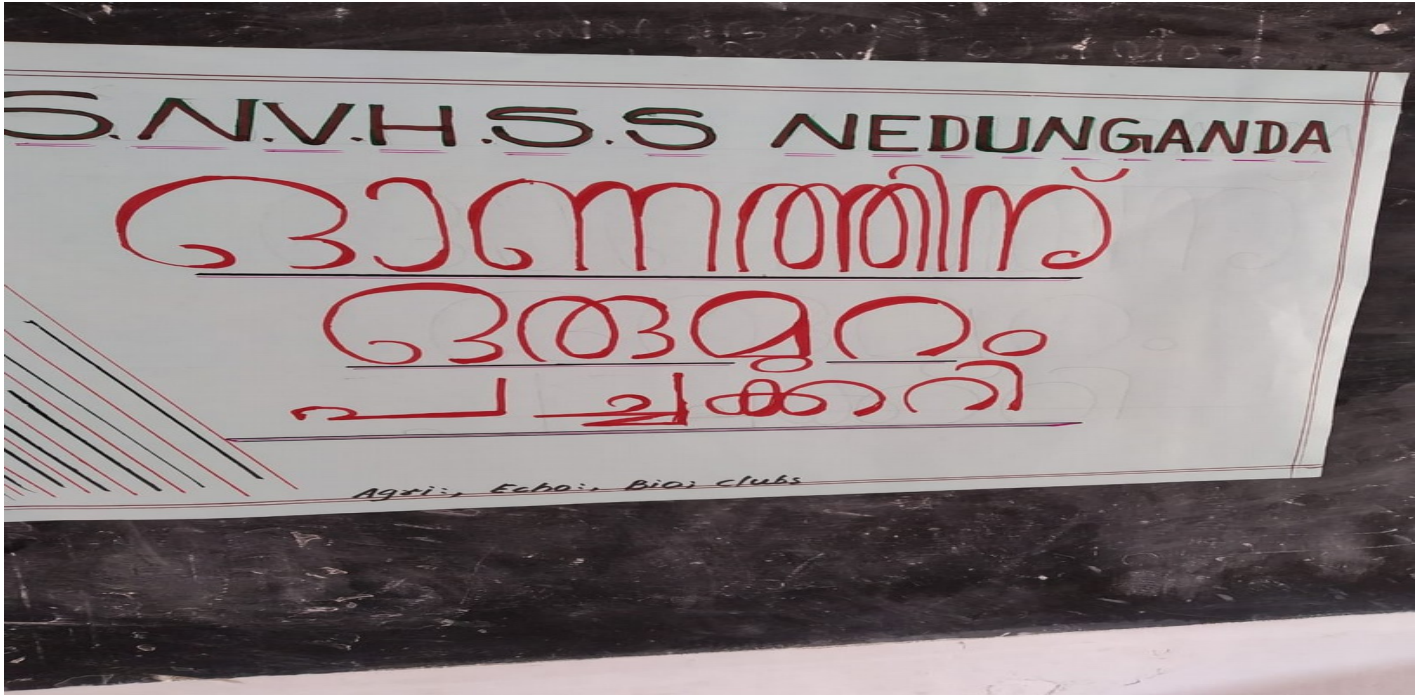 S.N.V.H.S.S NEDUNGANDA
ഓണത്തിന്
ഒരുമുറം
പച്ചക്കറി
Agri:, Echo:, Bio; clubs